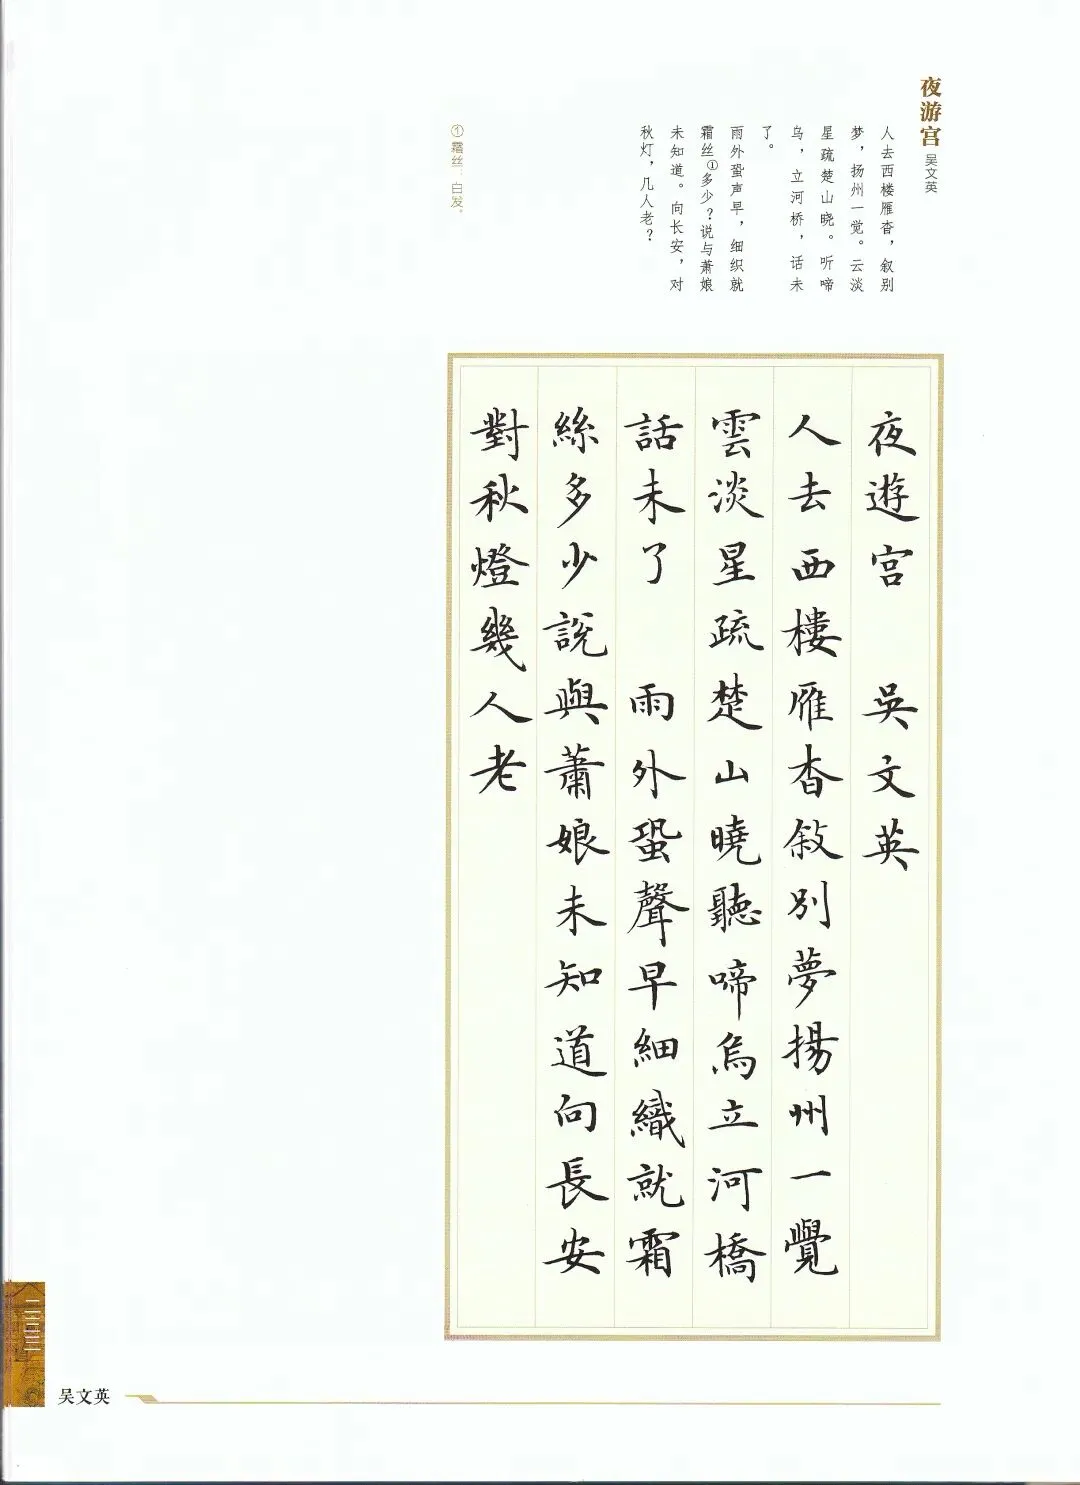 夜游宫
吴文英
人去西楼雁杳，叙别
梦，扬州一觉。云淡
星疏楚山晓。听啼
乌，立河桥，话未
了。
雨外蛩声早，细织就
霜丝①多少？说与萧娘
未知道。向长安，对
秋灯，几人老？
①霜丝：白发。
夜遊宫 吳文英
人去西樓雁杳敍別夢揚州一覺
雲淡星疏楚山曉聽啼烏立河橋
話未了 雨外蛩聲早細織就霜
絲多少說與蕭娘未知道向長安
對秋燈幾人老
吴文英